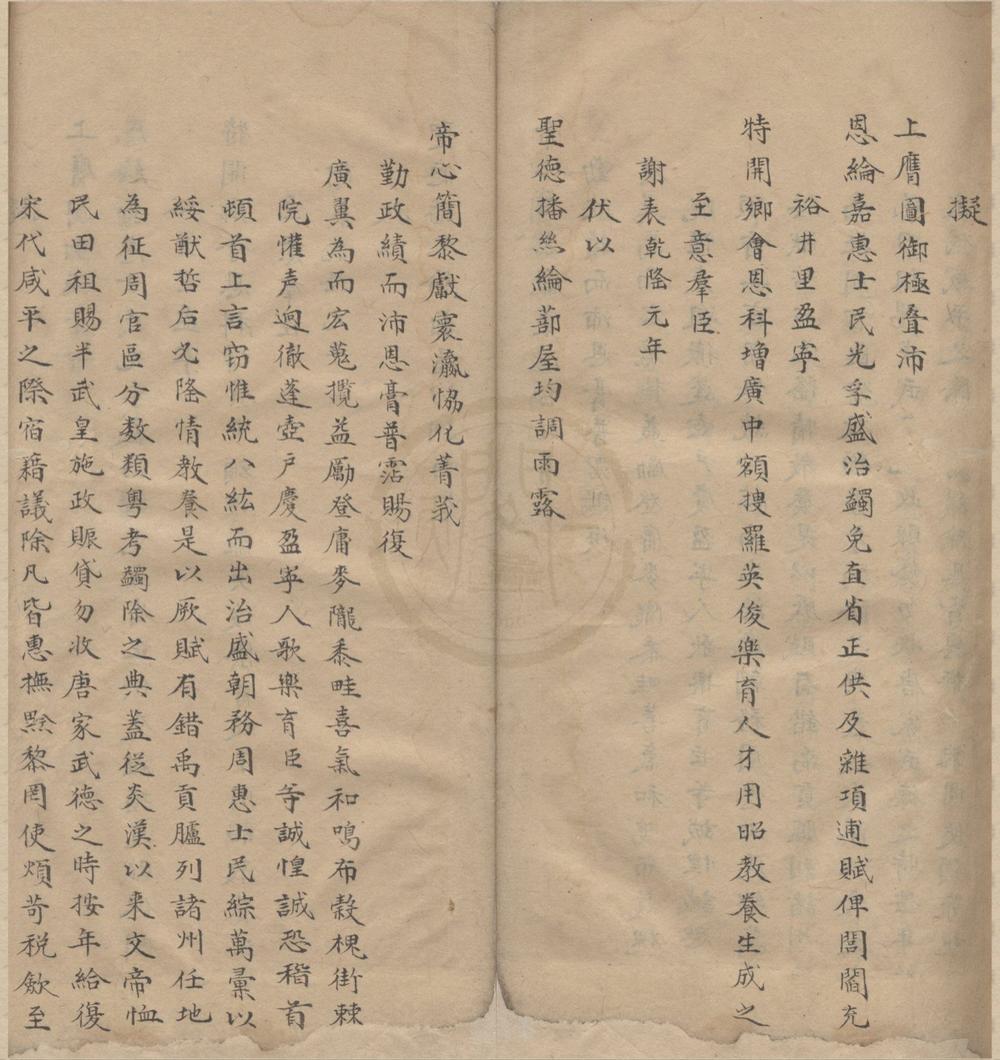 擬
上膺圖御極叠沛
恩綸嘉惠士民光孚盛治蠲免直省正供及雜項逋賦俾閭閻充
裕井里盈寧
特開鄉會恩科增廣中額捜羅英俊樂育人才用昭教養生成之
至意羣臣
謝表乾隆元年
伏以
聖德播絲綸蔀屋均調雨露
帝心簡黎獻寰瀛恊化菁莪
勤政績而沛恩膏普霑賜復
廣翼為而宏蒐攬益勵登庸麥隴黍畦喜氣和鳴布穀槐街棘
院懽声逈徹蓬壺戸慶盈寧人歌樂育臣等誠惶誠恐稽首
頓首上言窃惟統八紘而出治盛朝務周惠士民綜萬彚以
綏猷哲后必隆情教養是以厥賦有錯禹貢臚列諸州任地
為征周官區分数類粤考蠲除之典蓋從炎漢以来文帝恤
民田租賜半武皇施政賑貸勿收唐家武德之時按年給復
宋代咸平之際宿籍議除凡皆惠撫黔黎罔使煩苛税歛至